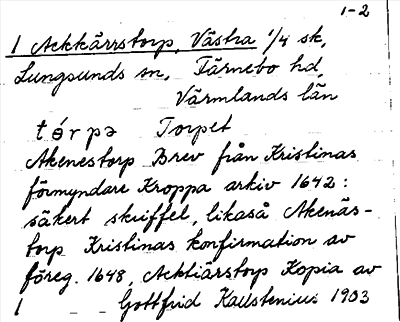 1-2
1 Ackkärrstorp, Västra 1/4 sk,
Lungsunds sn, Färnebo hd,
Värmlands län
tórpə Torpet
Akenestorp Brev från Kristinas
förmyndare Kroppa arkiv 1642:
säkert skriffel, likaså Akenäs-
torp Kristinas konfirmation av
föreg. 1648, Acktiärstorp Kopia av
1 Gottfrid Kallstenius 1903